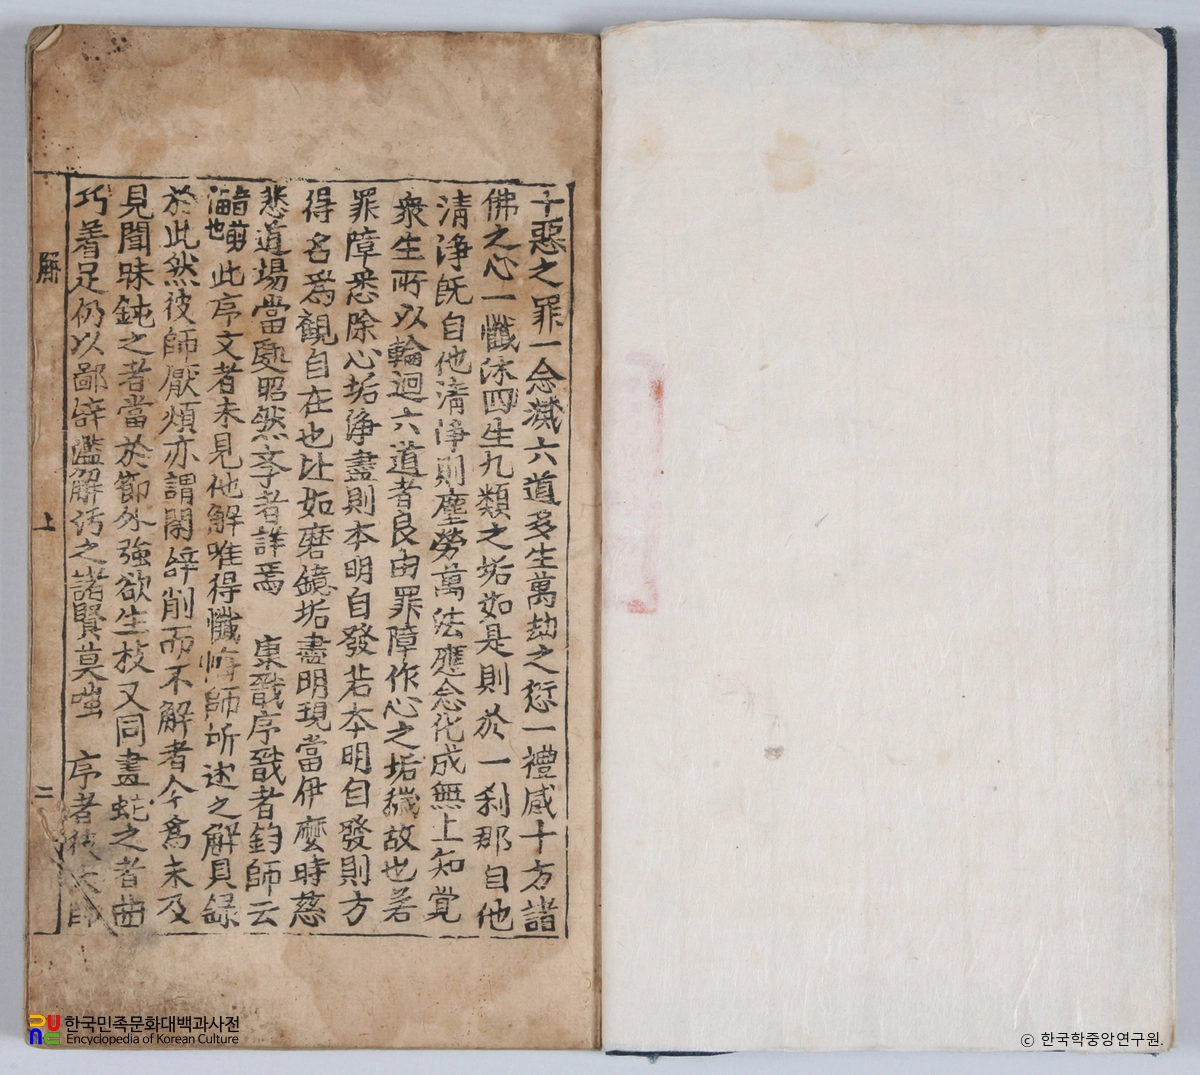 十惡之罪一念滅六道多生萬劫之愆一禮感十方諸
佛之心一懺沫四生九類之垢如是則於一刹那自他
清淨旣自他淸淨則塵勞萬法應念化成無上知覺
衆生所以輪迴六道者良由罪障作心之垢穢故也若
罪障悉除心垢淨盡則本明自發若本明自發則方
得名爲觀自在也比如磨鏡垢盡明現當伊麽時慈
悲道場當處昭然孝者詳焉 東戩序戩者鈞師云
此序文者未見他解唯得懺悔師所述之解具錄
於此然彼師厭煩亦謂閑辞削而不解者今爲未及
見聞昧鈍之者當於節外強欲生枝又同畫蛇之者曲
巧着足仍以鄙辞濫解汚之諸賢莫嗤 序者
解
上
二
한국민족문화대백과사전
Encyclopedia of Korean Culture
ⓒ 한국학중앙연구원.